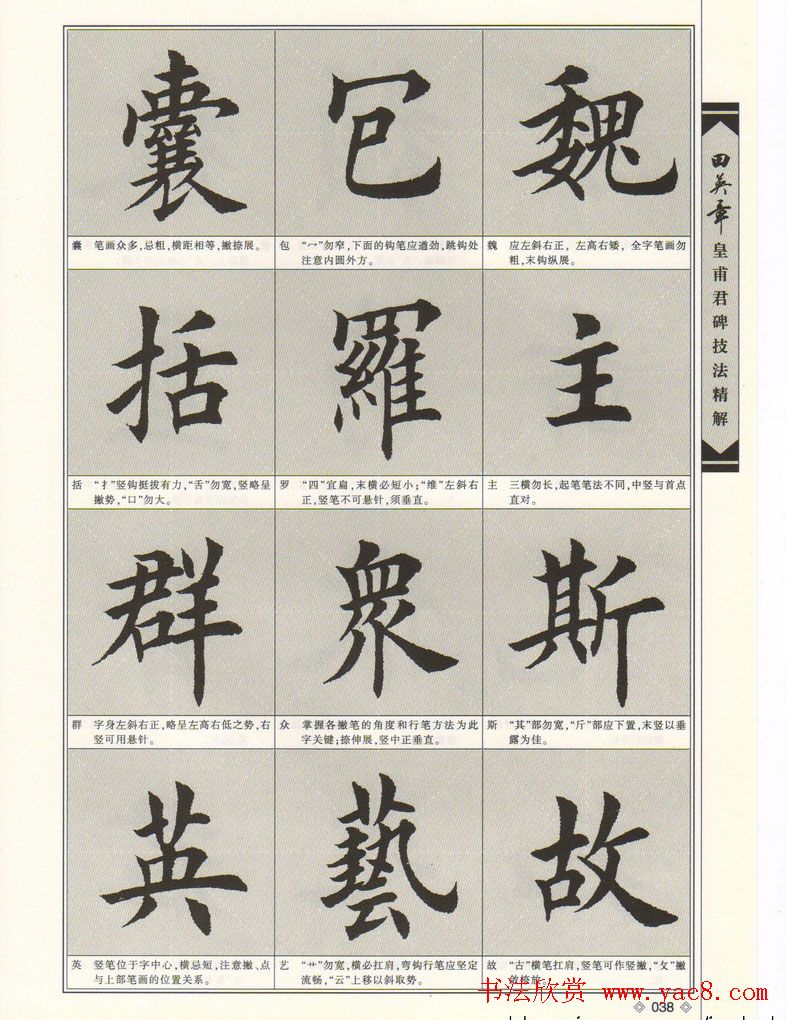 囊 包 魏
囊 笔画众多,忌粗,横距相等,撇捺展。
包 “冖”勿窄,下面的钩笔应遒劲,跳钩处
注意内圆外方。
魏 应左斜右正,左高右矮,全字笔画勿
粗,末钩纵展。
括 羅 主
括 “扌”竖钩挺拔有力,“舌”勿宽,竖略呈
撇势,“口”勿大。
罗 “四”宜扁,末横必短小;“维”左斜右
正,竖笔不可悬针,须垂直。
主 三横勿长,起笔笔法不同,中竖与首点
直对。
群 衆 斯
群 字身左斜右正,略呈左高右低之势,右
竖可用悬针。
众 掌握各撇笔的角度和行笔方法为此
字关键;捺伸展,竖中正垂直。
斯 “其”部勿宽,“斤”部应下置,末竖以垂
露为佳。
英 藝 故
英 竖笔位于字中心,横忌短,注意撇、点
与上部笔画的位置关系。
艺 “艹”勿宽,横必扛肩,弯钩行笔应坚定
流畅,“云”上移以斜取势。
故 “古”横笔扛肩,竖笔可作竖撇,“攵”撇
敛捺放。
田英章
皇甫君碑技法精解
书法欣赏 www.yac8.com
038